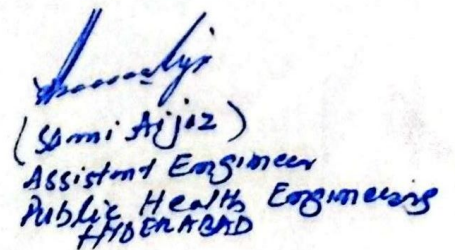 (Sami Aijaz)
Assistant Engineer
Public Health Engineering
HYDERABAD